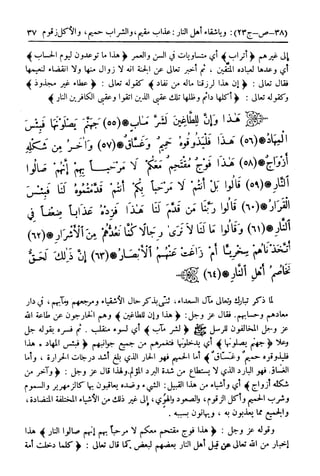 (٣٨-ص-ج٢٣): وياشقاء أهل النار: عذاب مقيم، والشراب حميم، والأكل زقوم ٣٧
إلى غيرهم ﴿أتراب﴾ أي متساويات في السن والعمر ﴿هذا ما توعدون ليوم الحساب﴾
أي وعدها لعباده المتقين، ثم أخبر تعالى عن الجنة انه لا زوال منها ولا انقضاء لنعيمها
فقال تعالى: ﴿إن هذا لرزقنا ماله من نفاد﴾ كقوله تعالى: ﴿عطاء غير مجذوذ﴾
وكقوله تعالى: ﴿أكلها دائم وظلها تلك عقبى الذين اتقوا وعقبى الكافرين النار﴾
هَذَا وَإِنَّ لِلطَّاغِينَ لَشَرَّ مَآبٍ (٥٥) جَهَنَّمَ يَصْلَوْنَهَا فَبِئْسَ
الْمِهَادُ (٥٦) هَذَا فَلْيَذُوقُوهُ حَمِيمٌ وَغَسَّاقٌ (٥٧) وَآخَرُ مِن شَكْلِهِ
أَزْوَاجٌ (٥٨) هَذَا فَوْجٌ مُّقْتَحِمٌ مَّعَكُمْ لَا مَرْحَبًا بِهِمْ إِنَّهُمْ صَالُوا
النَّارِ (٥٩) قَالُوا بَلْ أَنتُمْ لَا مَرْحَبًا بِكُمْ أَنتُمْ قَدَّمْتُمُوهُ لَنَا فَبِئْسَ
الْقَرَارُ (٦٠) قَالُوا رَبَّنَا مَن قَدَّمَ لَنَا هَذَا فَزِدْهُ عَذَابًا ضِعْفًا فِي
النَّارِ (٦١) وَقَالُوا مَا لَنَا لَا نَرَى رِجَالًا كُنَّا نَعُدُّهُم مِّنَ الْأَشْرَارِ (٦٢)
أَتَّخَذْنَاهُمْ سِخْرِيًّا أَمْ زَاغَتْ عَنْهُمُ الْأَبْصَارُ (٦٣) إِنَّ ذَلِكَ لَحَقٌّ
تَخَاصُمُ أَهْلِ النَّارِ (٦٤)
لما ذكر تبارك وتعالى مآل السعداء، ثنّى بذكر حال الأشقياء ومرجعهم ومآبهم، في دار
معادهم وحسابهم. فقال عز وجل: ﴿هذا وإن للطاغين﴾ وهم الخارجون عن طاعة الله
عز وجل المخالفون للرسل ﷺ ﴿لشر مآب﴾ أي لسوء منقلب. ثم فسره بقوله جل
وعلا ﴿جهنم يصلونها﴾ أي يدخلونها فتغمرهم من جميع جوانبهم ﴿فبئس المهاد. هذا
فليذوقوه حميم وغساق﴾ أما الحميم فهو الحار الذي بلغ أشد درجات الحرارة، وأما
الغساق. فهو البارد الذي لا يستطاع من شدة البرد المؤلم. ولهذا قال عز وجل: ﴿وآخر من
شكله أزواج﴾ أي وأشياء من هذا القبيل: الشيء وضده يعاقبون بها كالزمهرير والسموم
وشرب الحميم وأكل الزقوم، والصعود والهوي، إلى غير ذلك من الأشياء المختلفة المتضادة،
والجميع مما يعذبون به، ويهانون بسببه.
وقوله عز وجل: ﴿هذا فوج مقتحم معكم لا مرحباً بهم إنهم صالوا النار﴾ هذا
إخبار من الله تعالى عن قيل أهل النار بعضهم لبعض كما قال تعالى: ﴿كلما دخلت أمة